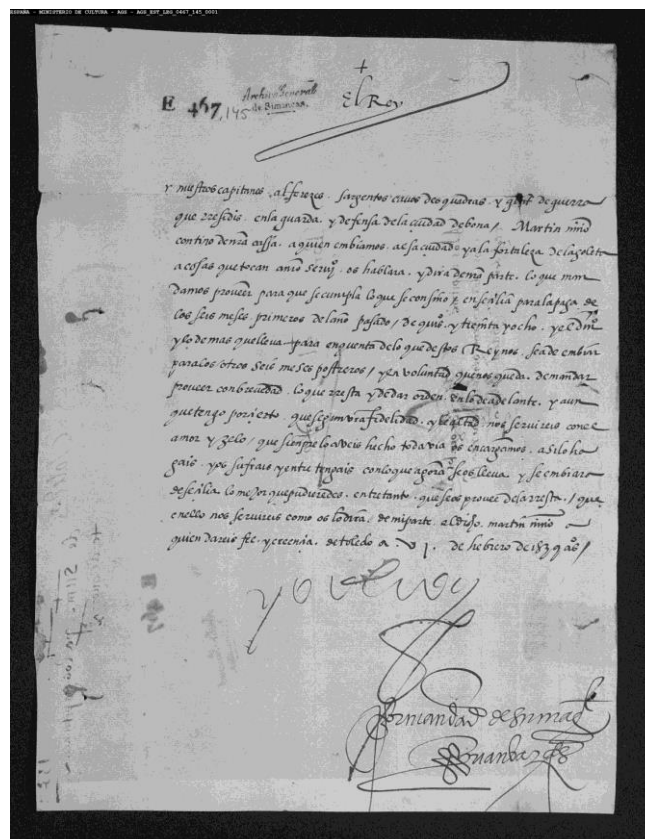 ESPAÑA - MINISTERIO DE CULTURA - AGS - AGS_EST_LEG_0467_145_0001
+
El Rey
E 467,145
Archivo General
de Simancas.
y nuestros capitanes alferezes sargentos cauos de esquadras y gente de guerra
que rresidis en la guarda y defensa de la ciudad de bona / Martin niño
contino de nra cassa a quien embiamos a esa ciudad y a la fortaleza de la goleta
a cosas que tocan a nro serui° os hablara y dira de mi parte lo que man
damos proueer para que se cumpla lo que se consino en seçilia para la paga de
los seis meses primeros del año pasado / de quis. y treinta y ocho y el din°
y lo demas que lleua para en quenta de lo que destos Reynos se a de embiar
para los otros seis meses postreros / y la voluntad que nos queda de mandar
proueer con breuedad lo que rresta y de dar orden en lo de adelante y aun
que tengo por çierto que segun vra fidelidad y lealtad nos seruireis con el
amor y zelo / que sienpre lo aueis hecho toda via os encargamos asi lo ha
gais y os sufrais y entretengais con lo que agora se os lleua y se embiara
de seçilia lo mejor que pudieredes entretanto que se os prouee de la rresta / que
en ello nos seruireis como os lo dira de mi parte el dicho martin niño a
quien dareis fee y creençia de toledo a VI de hebrero de 1539 as /
yo el Rey
Por mandado de su mag.
Juan vazqs
E 467